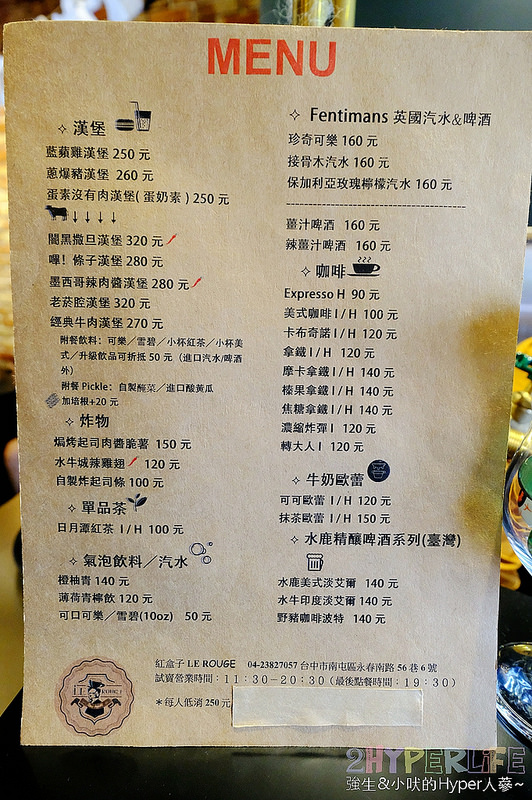 MENU
✧ 漢堡
藍蘋雞漢堡 250 元
蔥爆豬漢堡 260 元
蛋素沒有肉漢堡( 蛋奶素 ) 250 元
↓ ↓ ↓ ↓
闇黑撒旦漢堡 320 元
嗶! 條子漢堡 280 元
墨西哥辣肉醬漢堡 280 元
老菸腔漢堡 320 元
經典牛肉漢堡 270 元
附餐飲料: 可樂／雪碧／小杯紅茶／小杯美
式／升級飲品可折抵 50 元（進口汽水/啤酒
外）
附餐 Pickle: 自製醃菜／進口酸黃瓜
加培根+20 元
✧ 炸物
焗烤起司肉醬脆薯 150 元
水牛城辣雞翅 120 元
自製炸起司條 100 元
✧ 單品茶
日月潭紅茶 I/H 100 元
✧ 氣泡飲料／汽水
橙柚青 140 元
薄荷青檸飲 120 元
可口可樂／雪碧(10oz) 50 元
✧ Fentimans 英國汽水&啤酒
珍奇可樂 160 元
接骨木汽水 160 元
保加利亞玫瑰檸檬汽水 160 元
薑汁啤酒 160 元
辣薑汁啤酒 160 元
✧ 咖啡
Expresso H 90 元
美式咖啡 I/H 100 元
卡布奇諾 I/H 120 元
拿鐵 I/H 120 元
摩卡拿鐵 I/H 140 元
榛果拿鐵 I/H 140 元
焦糖拿鐵 I/H 140 元
濃縮炸彈 I 120 元
轉大人 I 120 元
✧ 牛奶歐蕾
可可歐蕾 I/H 120 元
抹茶歐蕾 I/H 150 元
✧ 水鹿精釀啤酒系列(臺灣)
水鹿美式淡艾爾 140 元
水牛印度淡艾爾 140 元
野豬咖啡波特 140 元
紅盒子 LE ROUGE 04-23827057 台中市南屯區永春南路 56 巷 6 號
試賣營業時間：11:30-20:30（最後點餐時間：19:30）
＊每人低消 250 元
2HYPERLIFE
強生&小吠的Hyper人蔘~